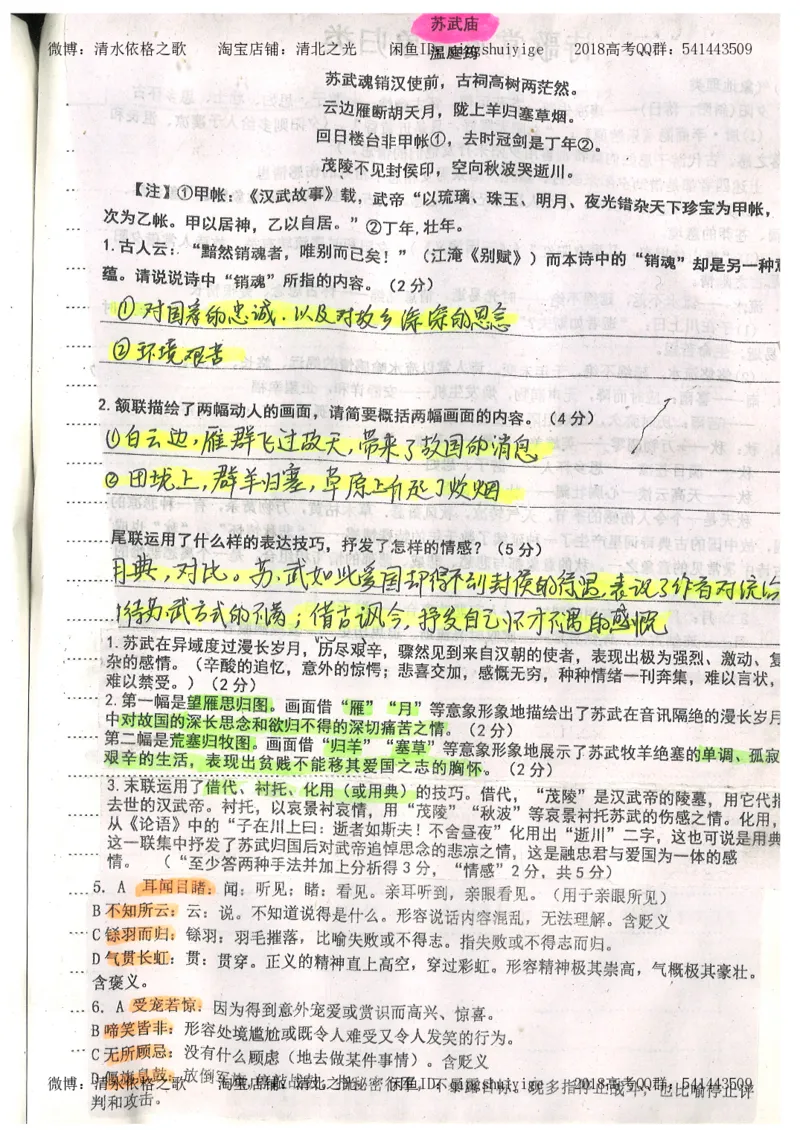 苏武庙
微博：清水依格之歌 淘宝店铺：清北之光 闲鱼ID：qingshuiyige 2018高考QQ群：541443509
温庭筠
苏武魂销汉使前，古祠高树两茫然。
云边雁断胡天月，陇上羊归塞草烟。
回日楼台非甲帐①，去时冠剑是丁年②。
茂陵不见封侯印，空向秋波哭逝川。
【注】①甲帐：《汉武故事》载，武帝“以琉璃、珠玉、明月、夜光错杂天下珍宝为甲帐，
次为乙帐。甲以居神，乙以自居。”②丁年,壮年。
1.古人云：“黯然销魂者，唯别而已矣！”（江淹《别赋》）而本诗中的“销魂”却是另一种意
蕴。请说说诗中“销魂”所指的内容。（2分）
①对国家的忠诚.以及对故乡深深的思念
②环境艰苦
2.颔联描绘了两幅动人的画面，请简要概括两幅画面的内容。（4分）
①白云边,雁群飞过故天,带来了故国的消息
②田垅上,群羊归塞,草原上升起了炊烟
尾联运用了什么样的表达技巧，抒发了怎样的情感？（5分）
用典,对比。苏武如此爱国却得不到封侯的待遇,表现了作者对统治
待苏武方式的不满；借古讽今,抒发自己怀才不遇的感慨
1.苏武在异域度过漫长岁月，历尽艰辛，骤然见到来自汉朝的使者，表现出极为强烈、激动、复
杂的感情。（辛酸的追忆，意外的惊愕；悲喜交加，感慨无穷，种种情绪一刊奔集，难以言状，
难以禁受。）（2分）
2.第一幅是望雁思归图。画面借“雁”“月”等意象形象地描绘出了苏武在音讯隔绝的漫长岁月
中对故国的深长思念和欲归不得的深切痛苦之情。（2分）
第二幅是荒塞归牧图。画面借“归羊”“塞草”等意象形象地展示了苏武牧羊绝塞的单调、孤寂
艰辛的生活，表现出贫贱不能移其爱国之志的胸怀。（2分）
3.末联运用了借代、衬托、化用（或用典）的技巧。借代，“茂陵”是汉武帝的陵墓，用它代指
去世的汉武帝。衬托，以哀景衬哀情，用“茂陵”“秋波”等哀景衬托苏武的伤感之情。化用，
从《论语》中的“子在川上曰：逝者如斯夫！不舍昼夜”化用出“逝川”二字，这也可说是用典
这一联集中抒发了苏武归国后对武帝追悼思念的悲凉之情，这是融忠君与爱国为一体的感
情。（“至少答两种手法并加上分析得3分，“情感”2分，共5分）
5. A 耳闻目睹：闻：听见；睹：看见。亲耳听到，亲眼看见。（用于亲眼所见）
B 不知所云：云：说。不知道说得是什么。形容说话内容混乱，无法理解。含贬义
C 铩羽而归：铩羽：羽毛摧落，比喻失败或不得志。指失败或不得志而归。
D 气贯长虹：贯：贯穿。正义的精神直上高空，穿过彩虹。形容精神极其崇高，气概极其豪壮。
含褒义。
6. A 受宠若惊：因为得到意外宠爱或赏识而高兴、惊喜。
B 啼笑皆非：形容处境尴尬或既令人难受又令人发笑的行为。
C 无所顾忌：没有什么顾虑（地去做某件事情）。含贬义
D 偃旗息鼓：放倒军旗，停敲战鼓。指秘密行军，不暴露目标。现多指停止战斗，也比喻停止评
微博：清水依格之歌 淘宝店铺：清北之光 闲鱼ID：qingshuiyige 2018高考QQ群：541443509
判和攻击。